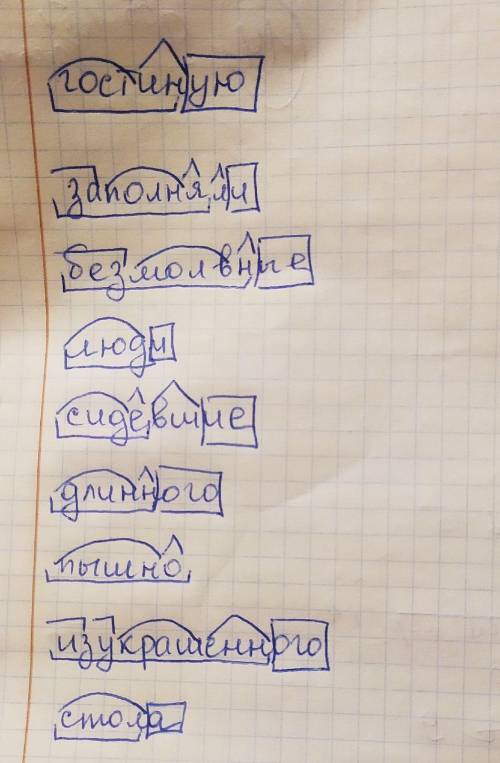 гостиную
заполняли
безмолвные
люди
сидевшие
длинного
пышно
изукрашенного
стола